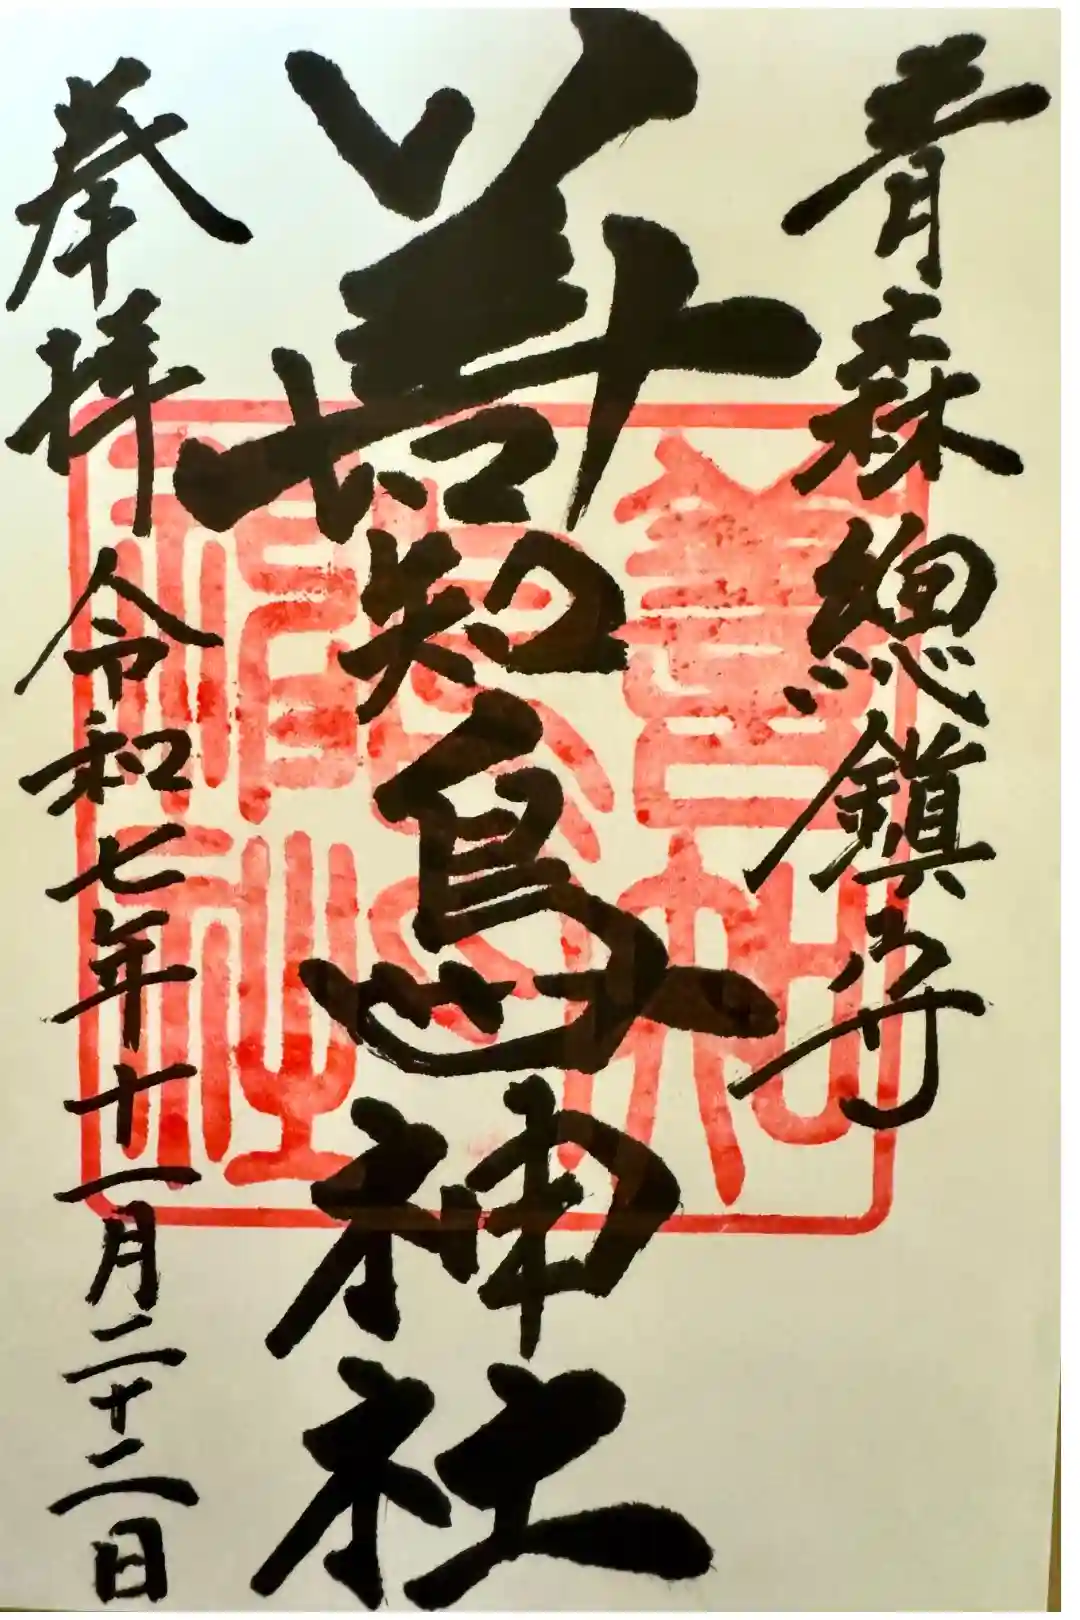 青森總鎮守
善知鳥神社
奉拝
令和七年十一月二十二日
善知
鳥神社